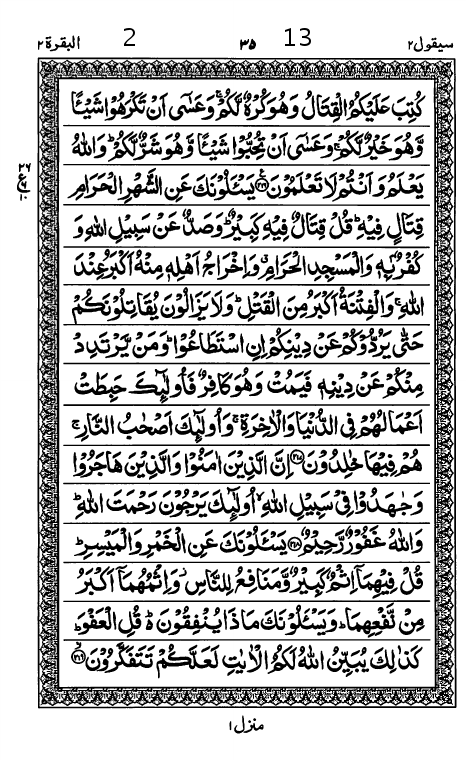 سیقول۲ 13 ۳۵ 2 البقرة ۲
كُتِبَ عَلَيْكُمُ الْقِتَالُ وَهُوَ كُرْهٌ لَّكُمْ ۚ وَعَسٰٓى اَنْ تَكْرَهُوْا شَيْـًٔا
وَّهُوَ خَيْرٌ لَّكُمْ ۚ وَعَسٰٓى اَنْ تُحِبُّوْا شَيْـًٔا وَّهُوَ شَرٌّ لَّكُمْ ؕ وَاللّٰهُ
يَعْلَمُ وَاَنْتُمْ لَا تَعْلَمُوْنَ ﴿۲۱۶﴾ يَسْـَٔلُوْنَكَ عَنِ الشَّهْرِ الْحَرَامِ
قِتَالٍ فِيْهِ ؕ قُلْ قِتَالٌ فِيْهِ كَبِيْرٌ ؕ وَصَدٌّ عَنْ سَبِيْلِ اللّٰهِ وَ
كُفْرٌۢ بِهٖ وَالْمَسْجِدِ الْحَرَامِ ۗ وَاِخْرَاجُ اَهْلِهٖ مِنْهُ اَكْبَرُ عِنْدَ
اللّٰهِ ۚ وَالْفِتْنَةُ اَكْبَرُ مِنَ الْقَتْلِ ؕ وَلَا يَزَالُوْنَ يُقَاتِلُوْنَكُمْ
حَتّٰى يَرُدُّوْكُمْ عَنْ دِيْنِكُمْ اِنِ اسْتَطَاعُوْا ؕ وَمَنْ يَّرْتَدِدْ
مِنْكُمْ عَنْ دِيْنِهٖ فَيَمُتْ وَهُوَ كَافِرٌ فَاُولٰٓئِكَ حَبِطَتْ
اَعْمَالُهُمْ فِى الدُّنْيَا وَالْاٰخِرَةِ ۚ وَاُولٰٓئِكَ اَصْحٰبُ النَّارِ ۚ
هُمْ فِيْهَا خٰلِدُوْنَ ﴿۲۱۷﴾ اِنَّ الَّذِيْنَ اٰمَنُوْا وَالَّذِيْنَ هَاجَرُوْا
وَجٰهَدُوْا فِىْ سَبِيْلِ اللّٰهِ ۙ اُولٰٓئِكَ يَرْجُوْنَ رَحْمَتَ اللّٰهِ ؕ
وَاللّٰهُ غَفُوْرٌ رَّحِيْمٌ ﴿۲۱۸﴾ يَسْـَٔلُوْنَكَ عَنِ الْخَمْرِ وَالْمَيْسِرِ ؕ
قُلْ فِيْهِمَآ اِثْمٌ كَبِيْرٌ وَّمَنَافِعُ لِلنَّاسِ ۡ وَاِثْمُهُمَآ اَكْبَرُ
مِنْ نَّفْعِهِمَا ؕ وَيَسْـَٔلُوْنَكَ مَاذَا يُنْفِقُوْنَ ؕ قُلِ الْعَفْوَ ؕ
كَذٰلِكَ يُبَيِّنُ اللّٰهُ لَكُمُ الْاٰيٰتِ لَعَلَّكُمْ تَتَفَكَّرُوْنَ ﴿۲۱۹﴾
منزل ۱